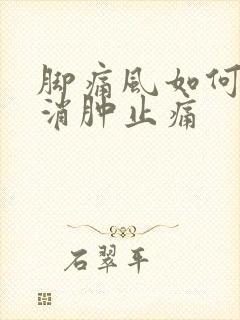 脚痛风如何
消肿止痛
石翠平